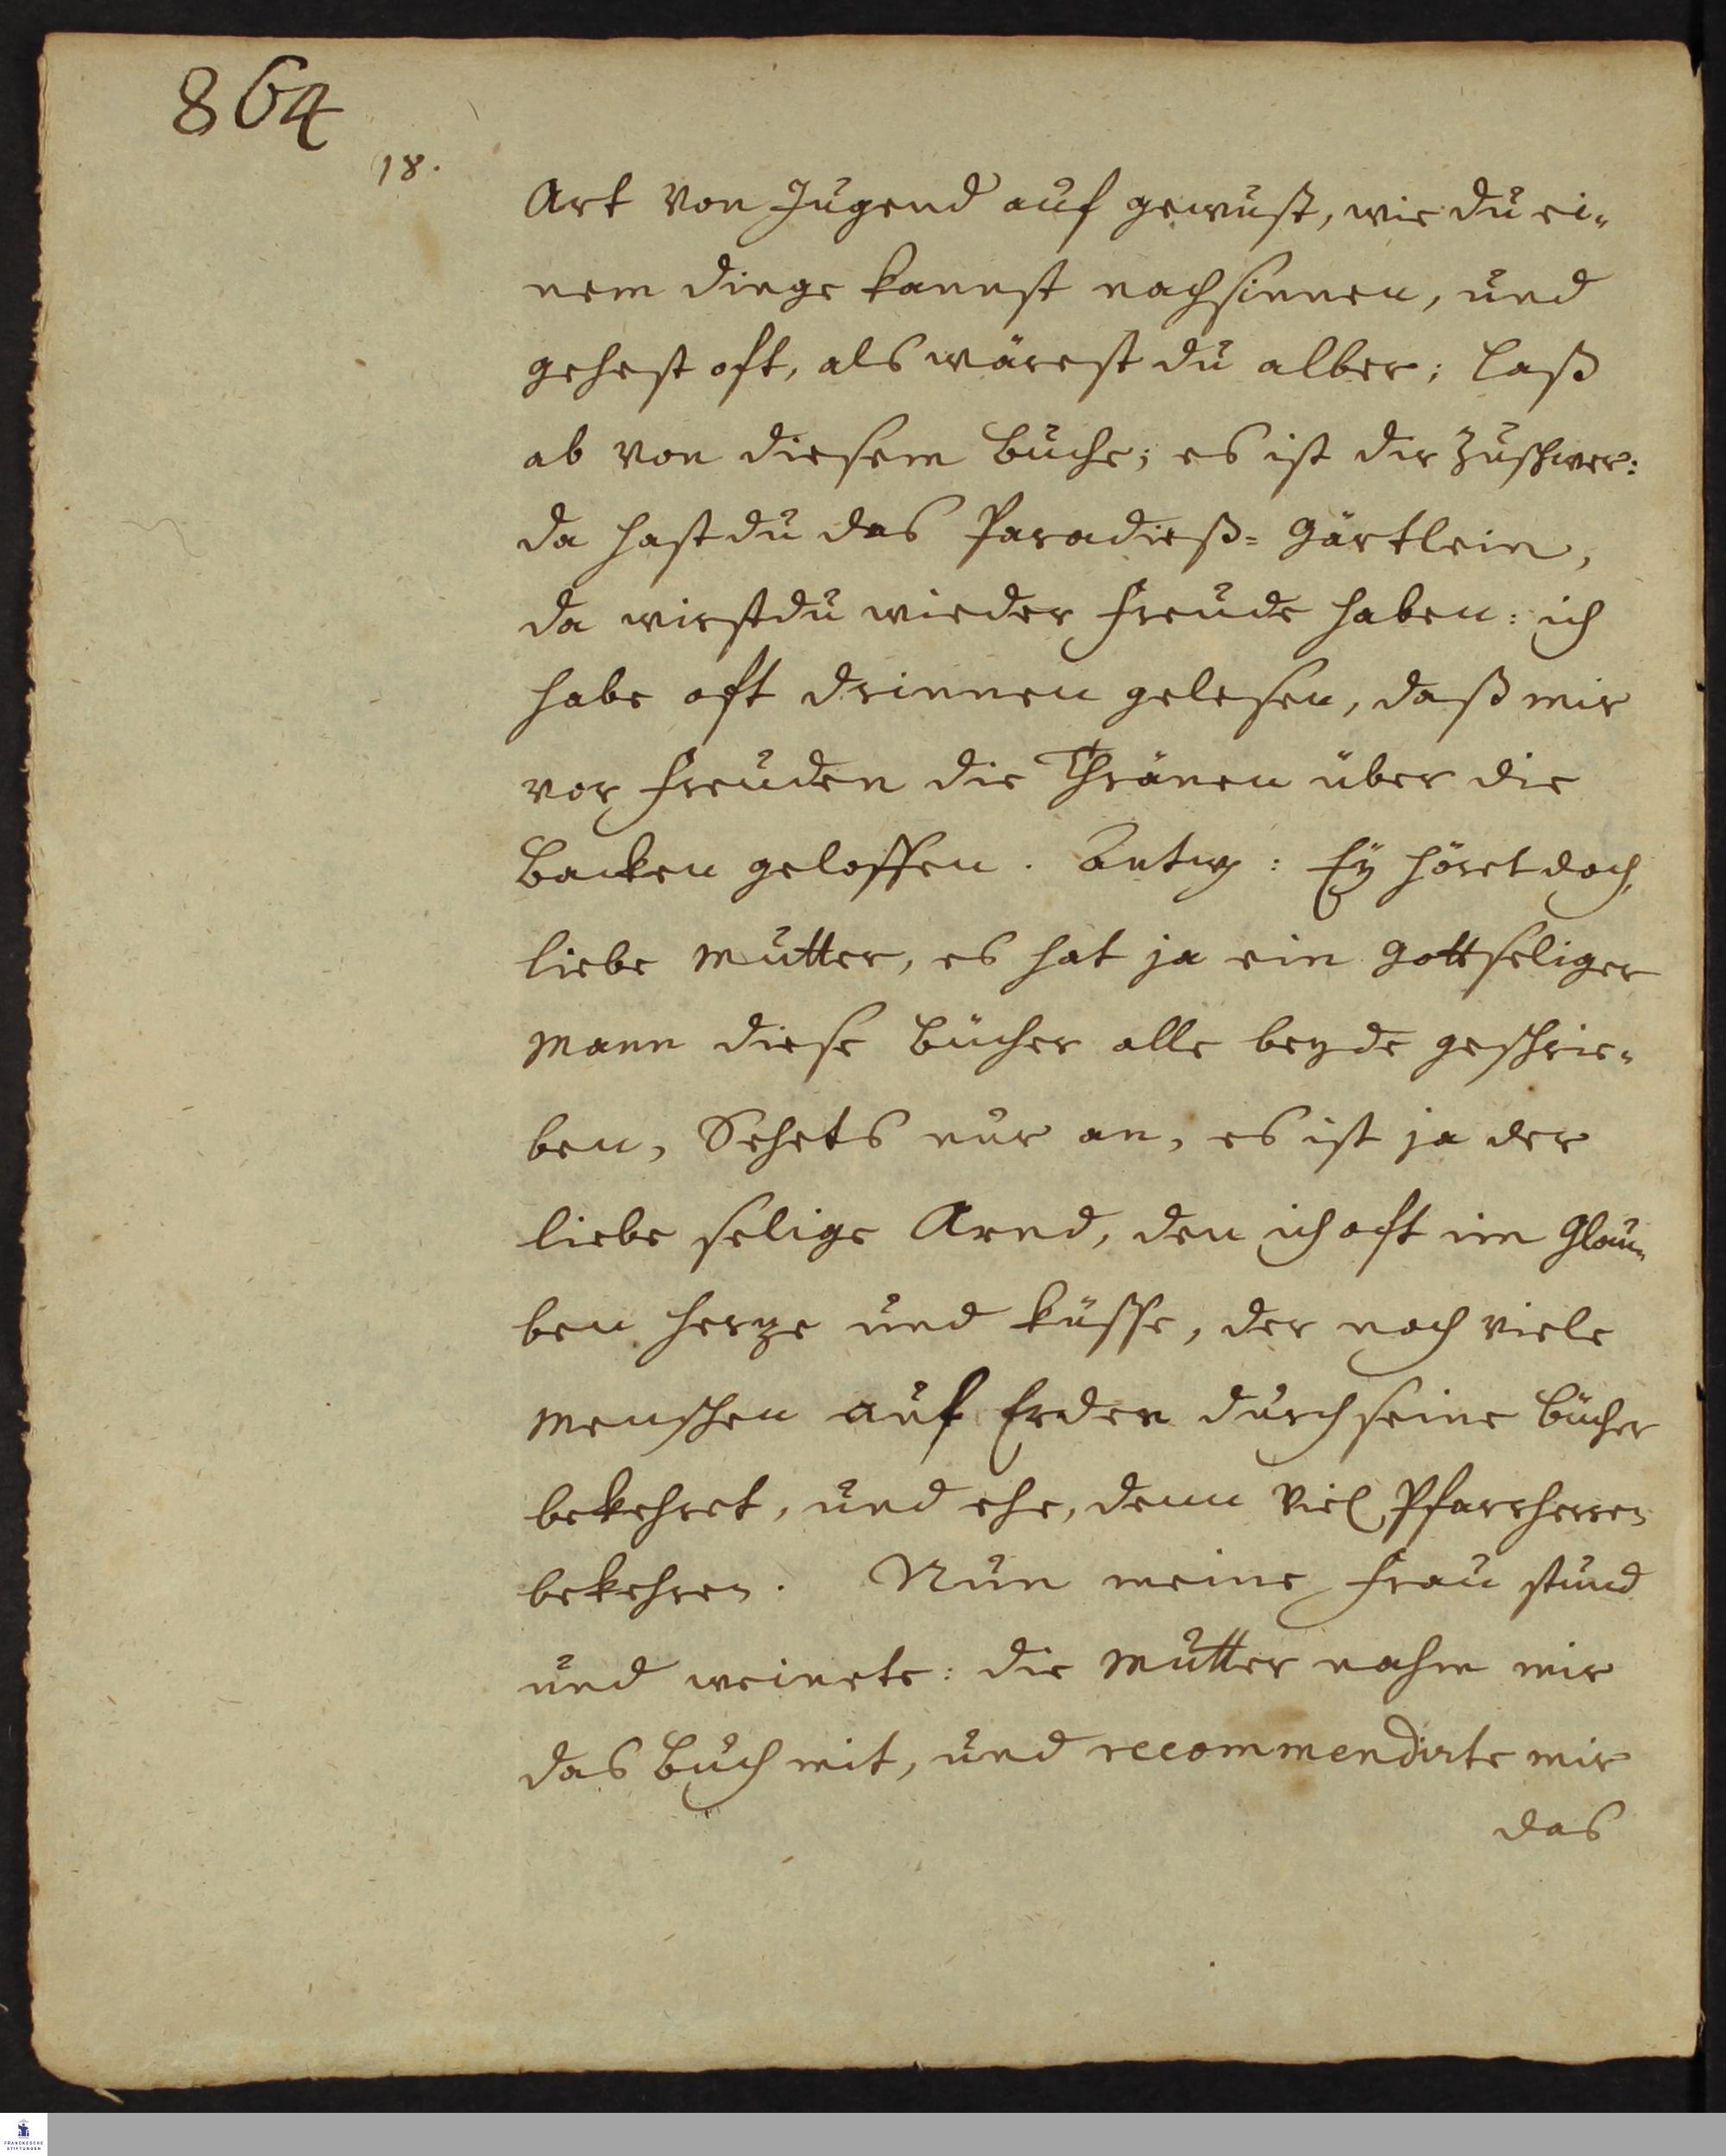 864
18.
Art von Jugend auf gewust, wie du ei-
nem dinge kannst nachsinnen, und
gehest oft, als wärest du alber; laß
ab von diesem Buche; es ist dir zuschwer:
da hast du das Paradieß-Gärtlein,
da wirstdu wieder Freude haben: ich
habe oft drinnen gelesen, daß mir
vor Freuden die Thränen über die
Backen geloffen. Antw: Ey höret doch,
liebe Mutter, es hat ja ein gottseliger
Mann diese Bücher alle beyde geschrie-
ben, Sehets nur an, es ist ja der
liebe selige Arnd, den ich oft im Glau-
ben herze und küsse, der noch viele
Menschen auf Erden durch seine Bücher
bekehret, und ehe, denn viel Pfarrherren
bekehren. Nun meine Frau stund
und weinete: die Mutter nahm mir
das Buch mit, und recommendirte mir
das
FRANCKESCHE
STIFTUNGEN